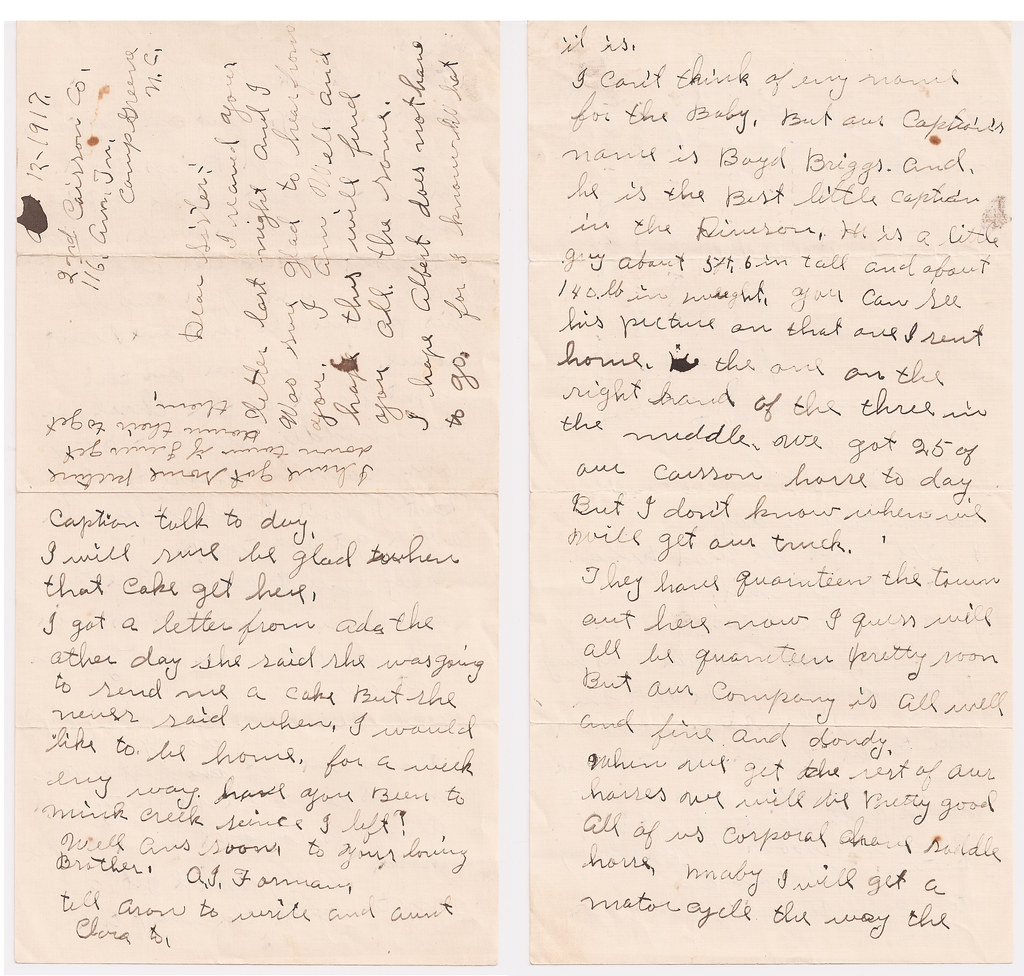 12-1917.
2nd Caisson Co.
116, Am, Trn,
Camp Greene
N.C.
Dear Sister:
I recived your
letter last night and I
Was sure glad to hear from
you. I am Well and
hope this will find
you all the same.
I hope Albert does not have
to go. for I know what
it is.
I can't think of eny name
for the Baby, But our Caption's
name is Boyd Briggs. And,
he is the Best little Caption
in the Divison, He is a little
guy about 5ft, 6 in tall and about
140.lb in weight, you can see
his picture on that one I sent
home. the one on the
right hand of the three in
the middle, we got 25 of
our Caisson horse to day
But I don't know when we
will get our truck.
They have quarnteen the town
out here now I guess will
all be quarnteen pretty soon
But our Company is all well
and fine and dandy,
When we get the rest of our
horses we will be Pretty good
All of us corporal have saddle
horse, maby I will get a
motor cycle the way the
Caption talk to day,
I will sure be glad when
that Cake get here,
I got a letter from Ada the
other day she said she was going
to send me a cake But she
never said when, I would
like to be home, for a week
eny way. have you Been to
Mink Creek since I left?
Well Ans soon, to your loving
Brother, A.J. Forman,
tell Aron to write and aunt
Clara to,
I have got some picture
down town if I ever get
down their to get
them,